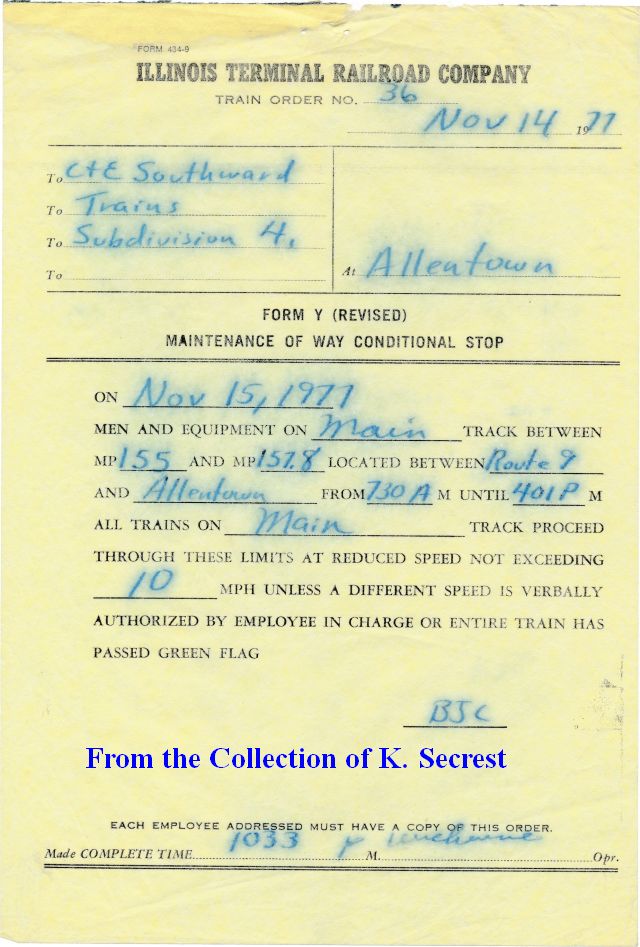 FORM 434-9
ILLINOIS TERMINAL RAILROAD COMPANY
TRAIN ORDER NO. 36
Nov 14 1977
To C+E Southward
To Trains
To Subdivision 4.
To
At Allentown
FORM Y (REVISED)
MAINTENANCE OF WAY CONDITIONAL STOP
ON Nov 15, 1977
MEN AND EQUIPMENT ON Main TRACK BETWEEN
MP 155 AND MP 157.8 LOCATED BETWEEN Route 9
AND Allentown FROM 730 A M UNTIL 401 P M
ALL TRAINS ON Main TRACK PROCEED
THROUGH THESE LIMITS AT REDUCED SPEED NOT EXCEEDING
10 MPH UNLESS A DIFFERENT SPEED IS VERBALLY
AUTHORIZED BY EMPLOYEE IN CHARGE OR ENTIRE TRAIN HAS
PASSED GREEN FLAG
BJC
From the Collection of K. Secrest
EACH EMPLOYEE ADDRESSED MUST HAVE A COPY OF THIS ORDER.
Made COMPLETE TIME 1033 P M. Opr.